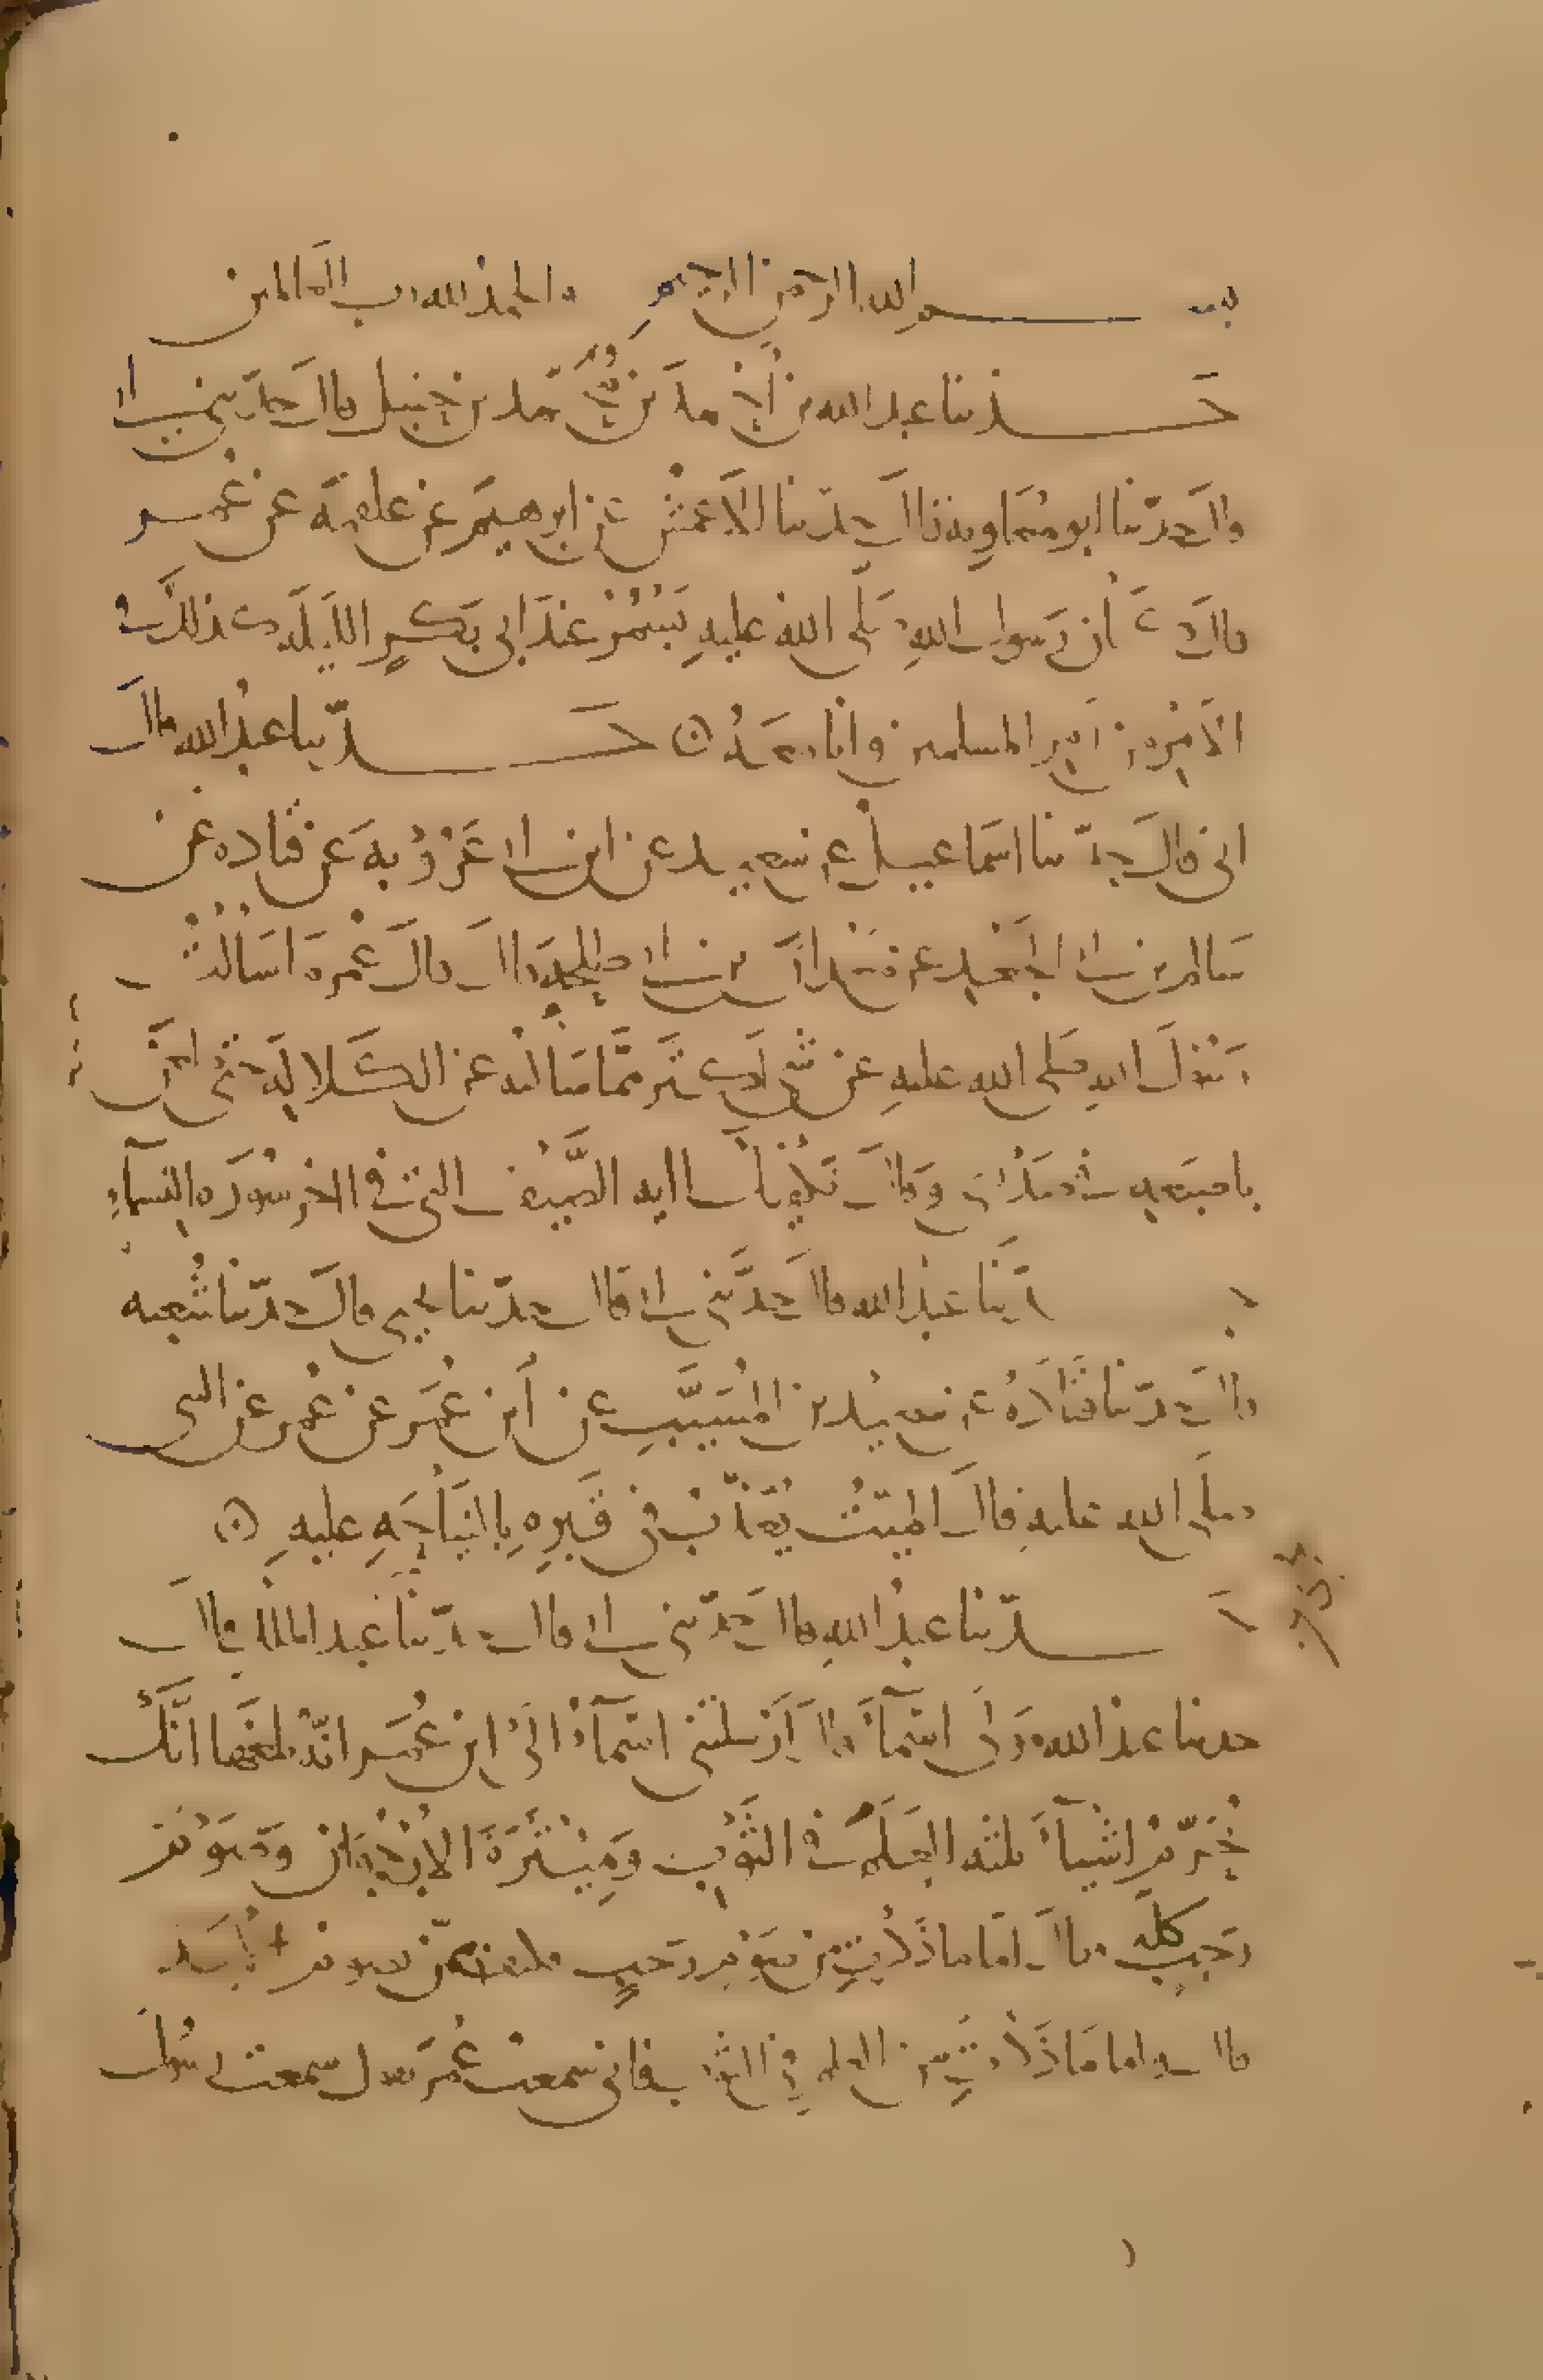 بسم الله الرحمن الرحيم والحمد لله رب العالمين
حدثنا عبد الله بن احمد بن محمد بن حنبل قال حدثني ابي
قال حدثنا ابو معاويه قال حدثنا الاعمش عن ابرهيم عن علقمه عن عمر
قال كان رسول الله صلى الله عليه يسمر عند ابي بكر الليله كذلك في
الامر من امر المسلمين وانا معه
حدثنا عبد الله قال
ابي قال حدثنا اسماعيل عن سعيد عن ابن ابي عروبه عن قتاده عن
سالم بن ابي الجعد عن معدان بن ابي طلحه قال قال عمر ما سالت
رسول الله صلى الله عليه عن شي اكثر مما سالته عن الكلاله حتى طعن
باصبعه في صدري وقال تكفيك ايه الصيف التي في اخر سوره النسآء
حدثنا عبد الله قال حدثني ابي قال حدثنا يحيى قال حدثنا شعبه
قال حدثنا قتاده عن سعيد بن المسيب عن ابن عمر عن عمر عن النبي
صلى الله عليه قال الميت يعذب في قبره بالنياحه عليه
حدثنا عبد الله قال حدثني ابي قال حدثنا عبد الملك قال
حدثنا عبد الله مولى اسمآء قال ارسلتني اسمآء الى ابن عمر انه بلغها انك
تحرم اشيآء ثلثه العلم في الثوب وميثرة الارجوان وصوم
رجب كله فقال اما ما ذكرت من صوم رجب فكيف بمن يصوم الابد
قال واما ما ذكرت من العلم في الثوب فاني سمعت عمر يقول سمعت رسول